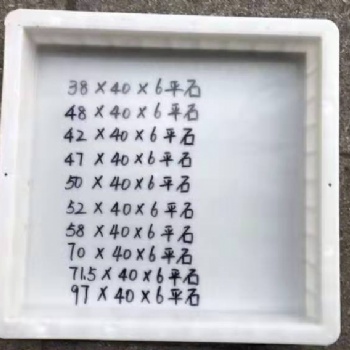 38×40×6平石
48×40×6平石
42×40×6平石
47×40×6平石
50×40×6平石
52×40×6平石
58×40×6平石
70×40×6平石
71.5×40×6平石
97×40×6平石